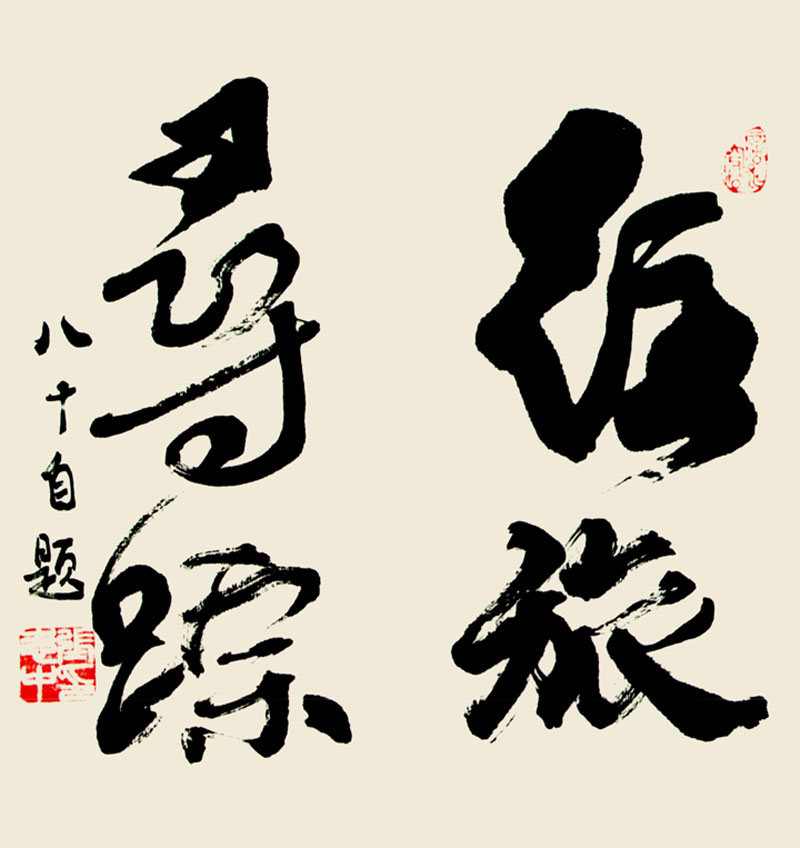 征旅
尋踪
八十自题